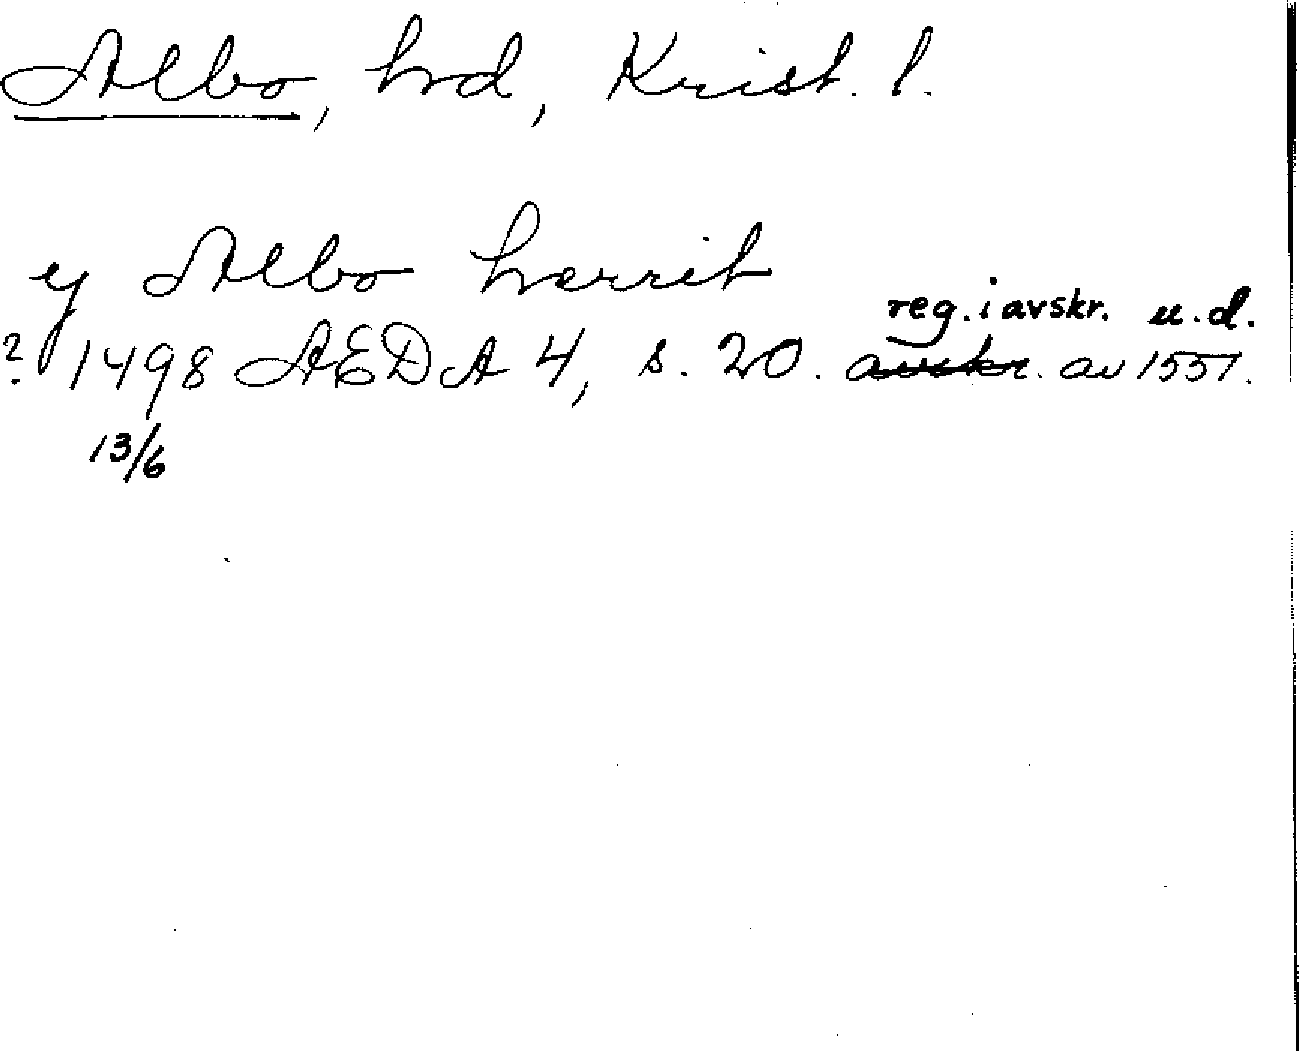 Albo, hrd, Krist. l.
y Albo herrit
reg. i avskr. u.d.
? 1498 AEDA 4, s. 20. avskr. av 1551.
13/6